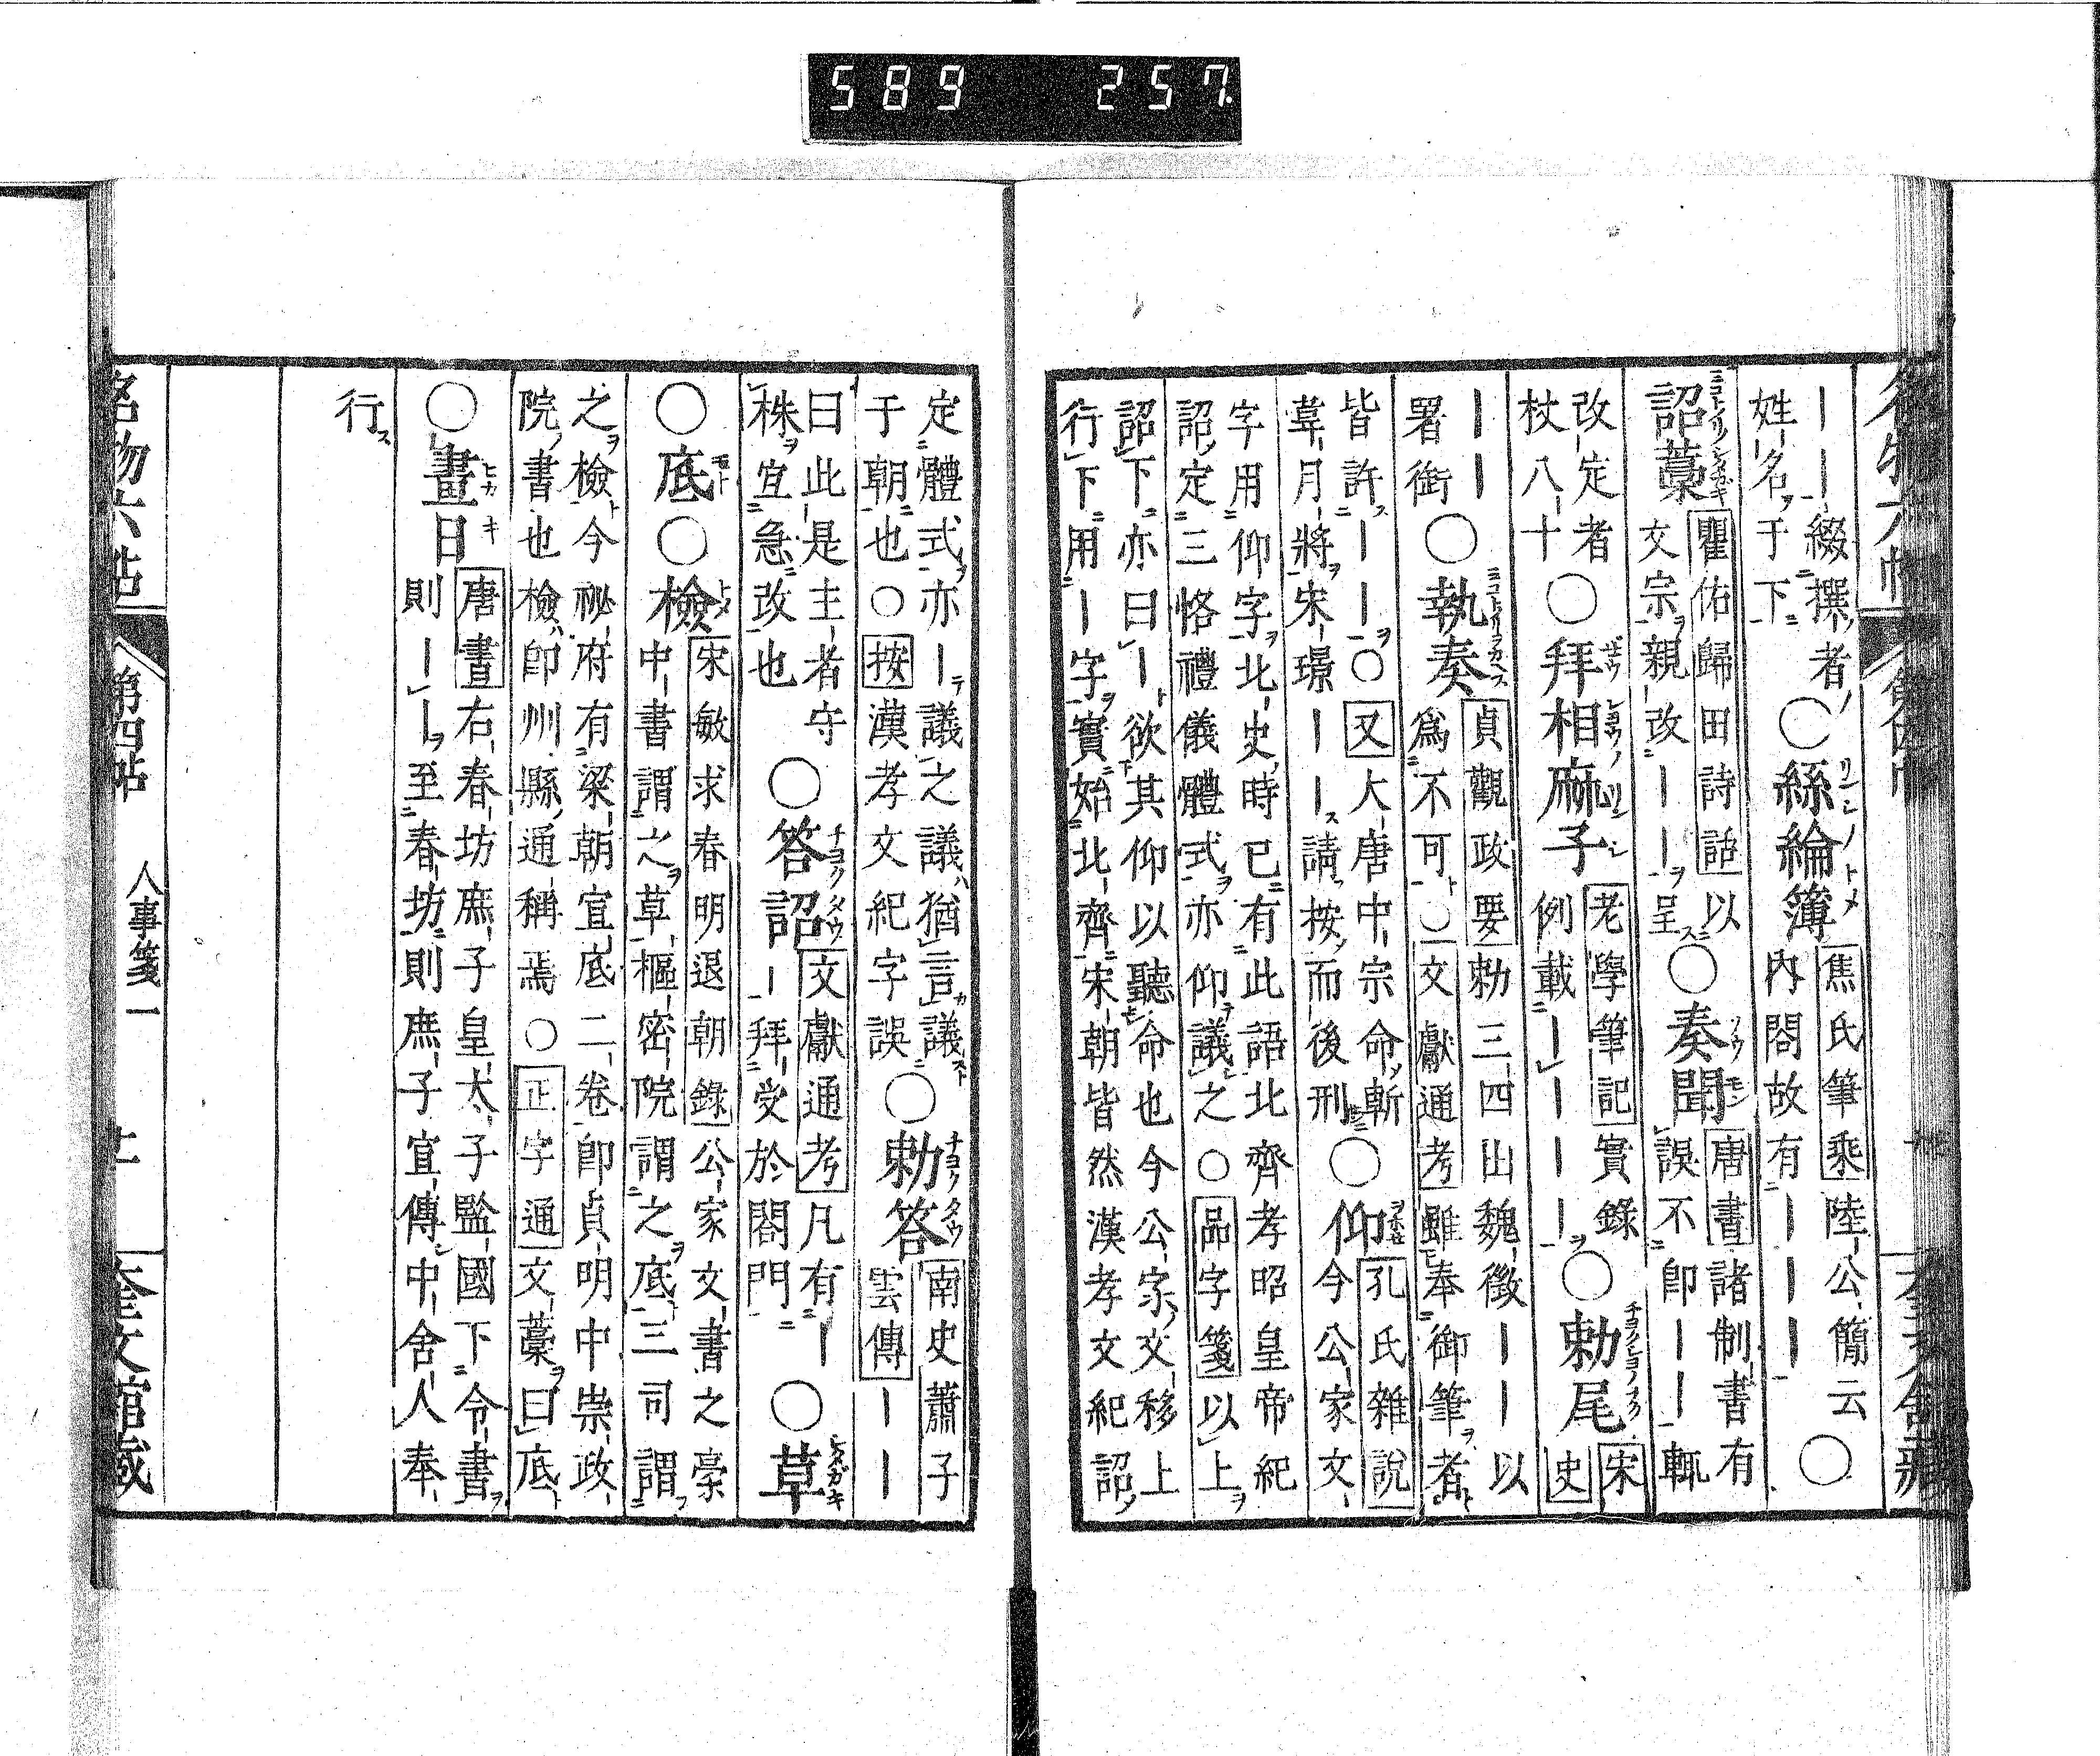 名物六帖 第四帖 奎文舘藏
｜｜綴撰者
姓名于下
○絲綸簿
リンリンノトメ
焦氏筆乘陸公簡云
內閣故有｜｜｜
○
詔藁
瞿佑歸田詩話以
文宗親改｜｜呈
○奏聞
ソウモン
唐書諸制書有
誤不即｜｜輒
改定者
杖八十
○拜相麻子
老學筆記實錄
例載｜｜｜｜
○勅尾
宋
史
｜｜
署銜
○執奏
貞觀政要勅三四出魏徵｜｜以
爲不可○文獻通考雖奉御筆者
皆許｜｜○又大唐中宗命斬
韋月將宋璟｜｜請按而後刑
○仰
孔氏雜說
今公家文
字用仰字北史時已有此語北齊孝昭皇帝紀
詔定三恪禮儀體式亦仰議之○品字箋以上
詔下亦曰｜欲其仰以聽命也今公家文移上
行下用｜字實始北齊宋朝皆然漢孝文紀詔
定體式亦｜議之議猶言議
于朝也○按漢孝文紀字誤
○勅答
チヨクタウ
南史蕭子
雲傳｜｜
曰此是主者守
株宜急改也
○答詔
チヨクタウ
文獻通考凡有｜
｜拜受於閤門
○草
シタガキ
○底
モト
○檢
トメ
宋敏求春明退朝錄公家文書之藁
中書謂之草樞密院謂之底三司謂
之檢今祕府有梁朝宣底二卷卽貞明中崇政
院書也檢卽州縣通稱焉○正字通文藁曰底
○晝日
ヒカキ
唐書右春坊庶子皇太子監國下令書
則｜｜至春坊則庶子宣傳中舍人奉
行
名物六帖 第四帖 人事箋一 奎文舘藏
589 257